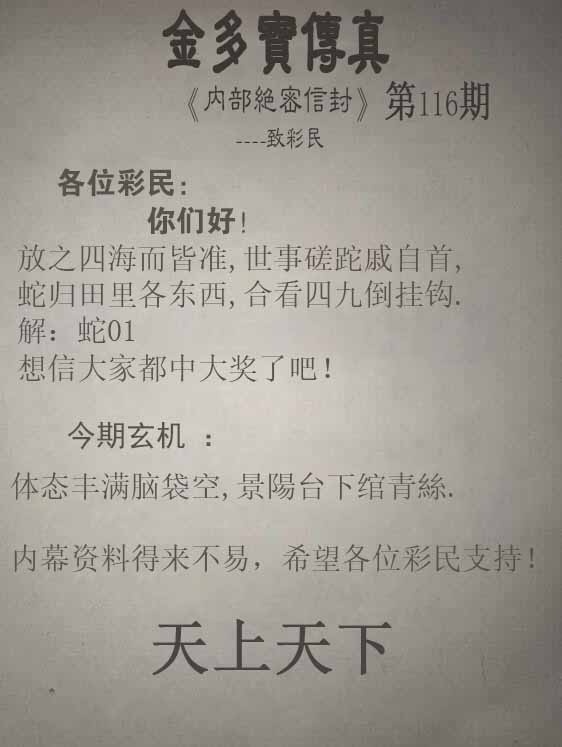 金多寳傳真
《内部絶密信封》第116期
----致彩民
各位彩民:
你们好!
放之四海而皆准,世事磋跎戚自首,
蛇归田里各东西,合看四九倒挂钩.
解：蛇01
想信大家都中大奖了吧!
今期玄机 ：
体态丰满脑袋空,景陽台下绾青絲.
内幕资料得来不易，希望各位彩民支持!
天上天下